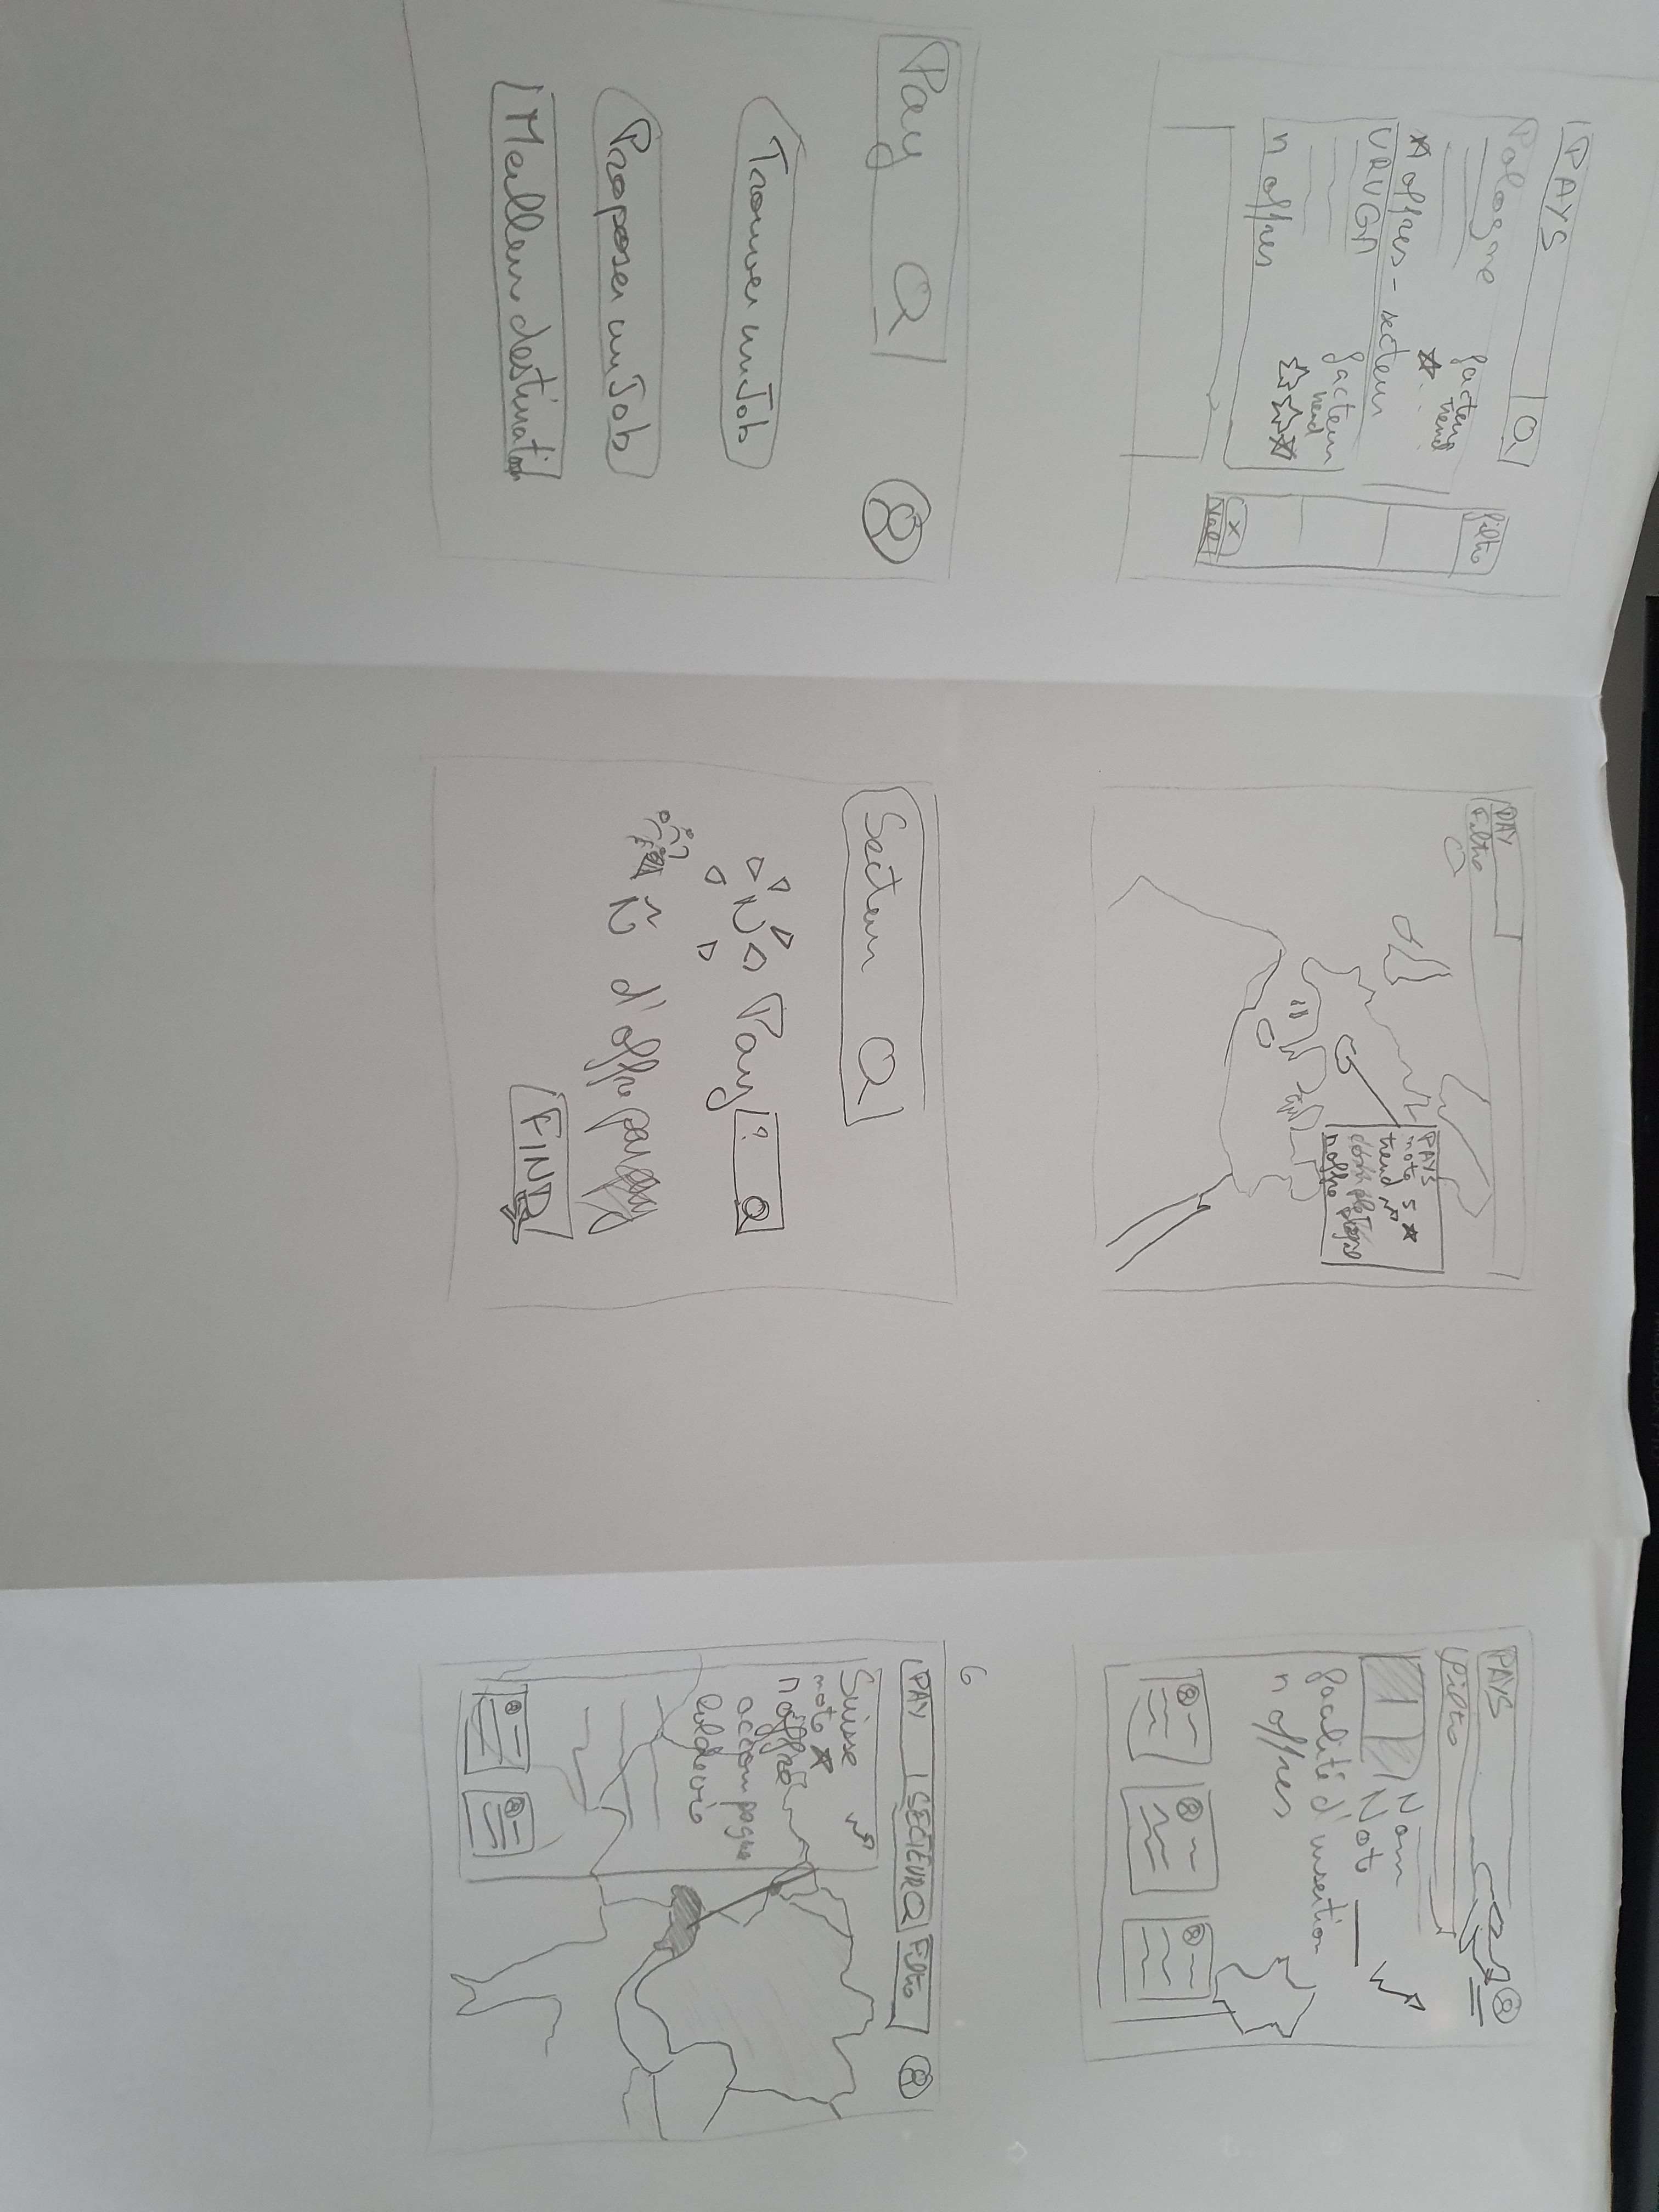 PAYS
Pologne
facteur
trend
offres - secteur
URUGA
facteur
trend
n offres
filtre
X
Val
PAY
Filtre
PAYS
note 5
trend
n offre
PAYS
filtre
Nom
Not
facilité d'insertion
n offres
Pay
Trouver un Job
Proposer un Job
Meilleur destination
Secteur
N Pay ?
Ñ d'offre par
FIND
6
PAY SECTEUR Filtre
Suisse
note
n offre
accompagne